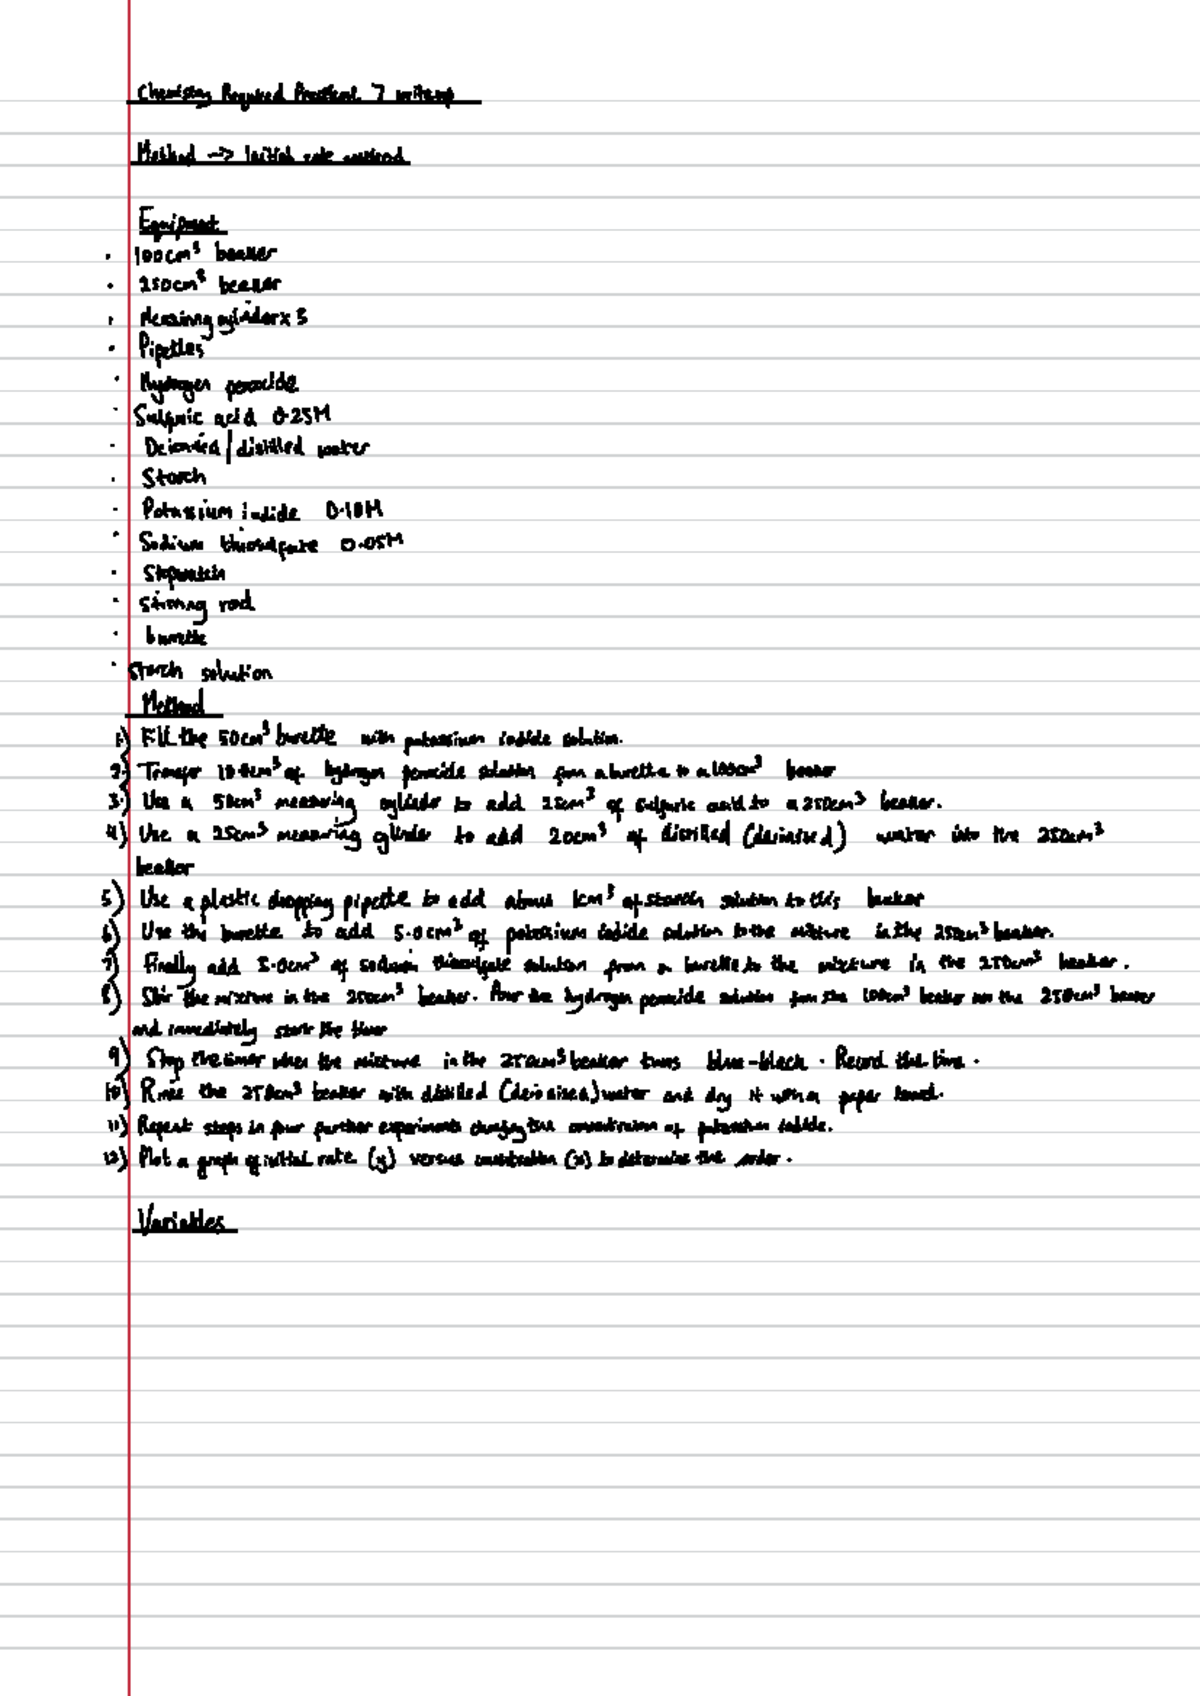 Chemistry Required Practical 7 writeup
Method -> Initial rate method
Equipment
· 100cm³ beaker
· 250cm³ beaker
· Measuring cylinder x 3
· Pipettes
· Hydrogen peroxide
· Sulfuric acid 0.25M
· Deionised/distilled water
· Starch
· Potassium iodide 0.10M
· Sodium thiosulfate 0.05M
· Stopwatch
· Stirring rod
· burette
· Starch solution
Method
1) Fill the 50cm³ burette with potassium iodide solution.
2) Transfer 10.0cm³ of hydrogen peroxide solution from a burette to a 100cm³ beaker
3) Use a 50cm³ measuring cylinder to add 25cm³ of sulfuric acid to a 250cm³ beaker.
4) Use a 25cm³ measuring cylinder to add 20cm³ of distilled (deionised) water into the 250cm³
beaker
5) Use a plastic dropping pipette to add about 1cm³ of starch solution to this beaker
6) Use the burette to add 5.0cm³ of potassium iodide solution to the mixture in the 250cm³ beaker.
7) Finally add 5.0cm³ of sodium thiosulfate solution from a burette to the mixture in the 250cm³ beaker.
8) Stir the mixture in the 250cm³ beaker. Pour the hydrogen peroxide solution from the 100cm³ beaker into the 250cm³ beaker
and immediately start the timer
9) Stop the timer when the mixture in the 250cm³ beaker turns blue-black. Record the time.
10) Rinse the 250cm³ beaker with distilled (deionised) water and dry it with a paper towel.
11) Repeat steps in four further experiments changing the concentration of potassium iodide.
12) Plot a graph of initial rate (y) versus concentration (x) to determine the order.
Variables